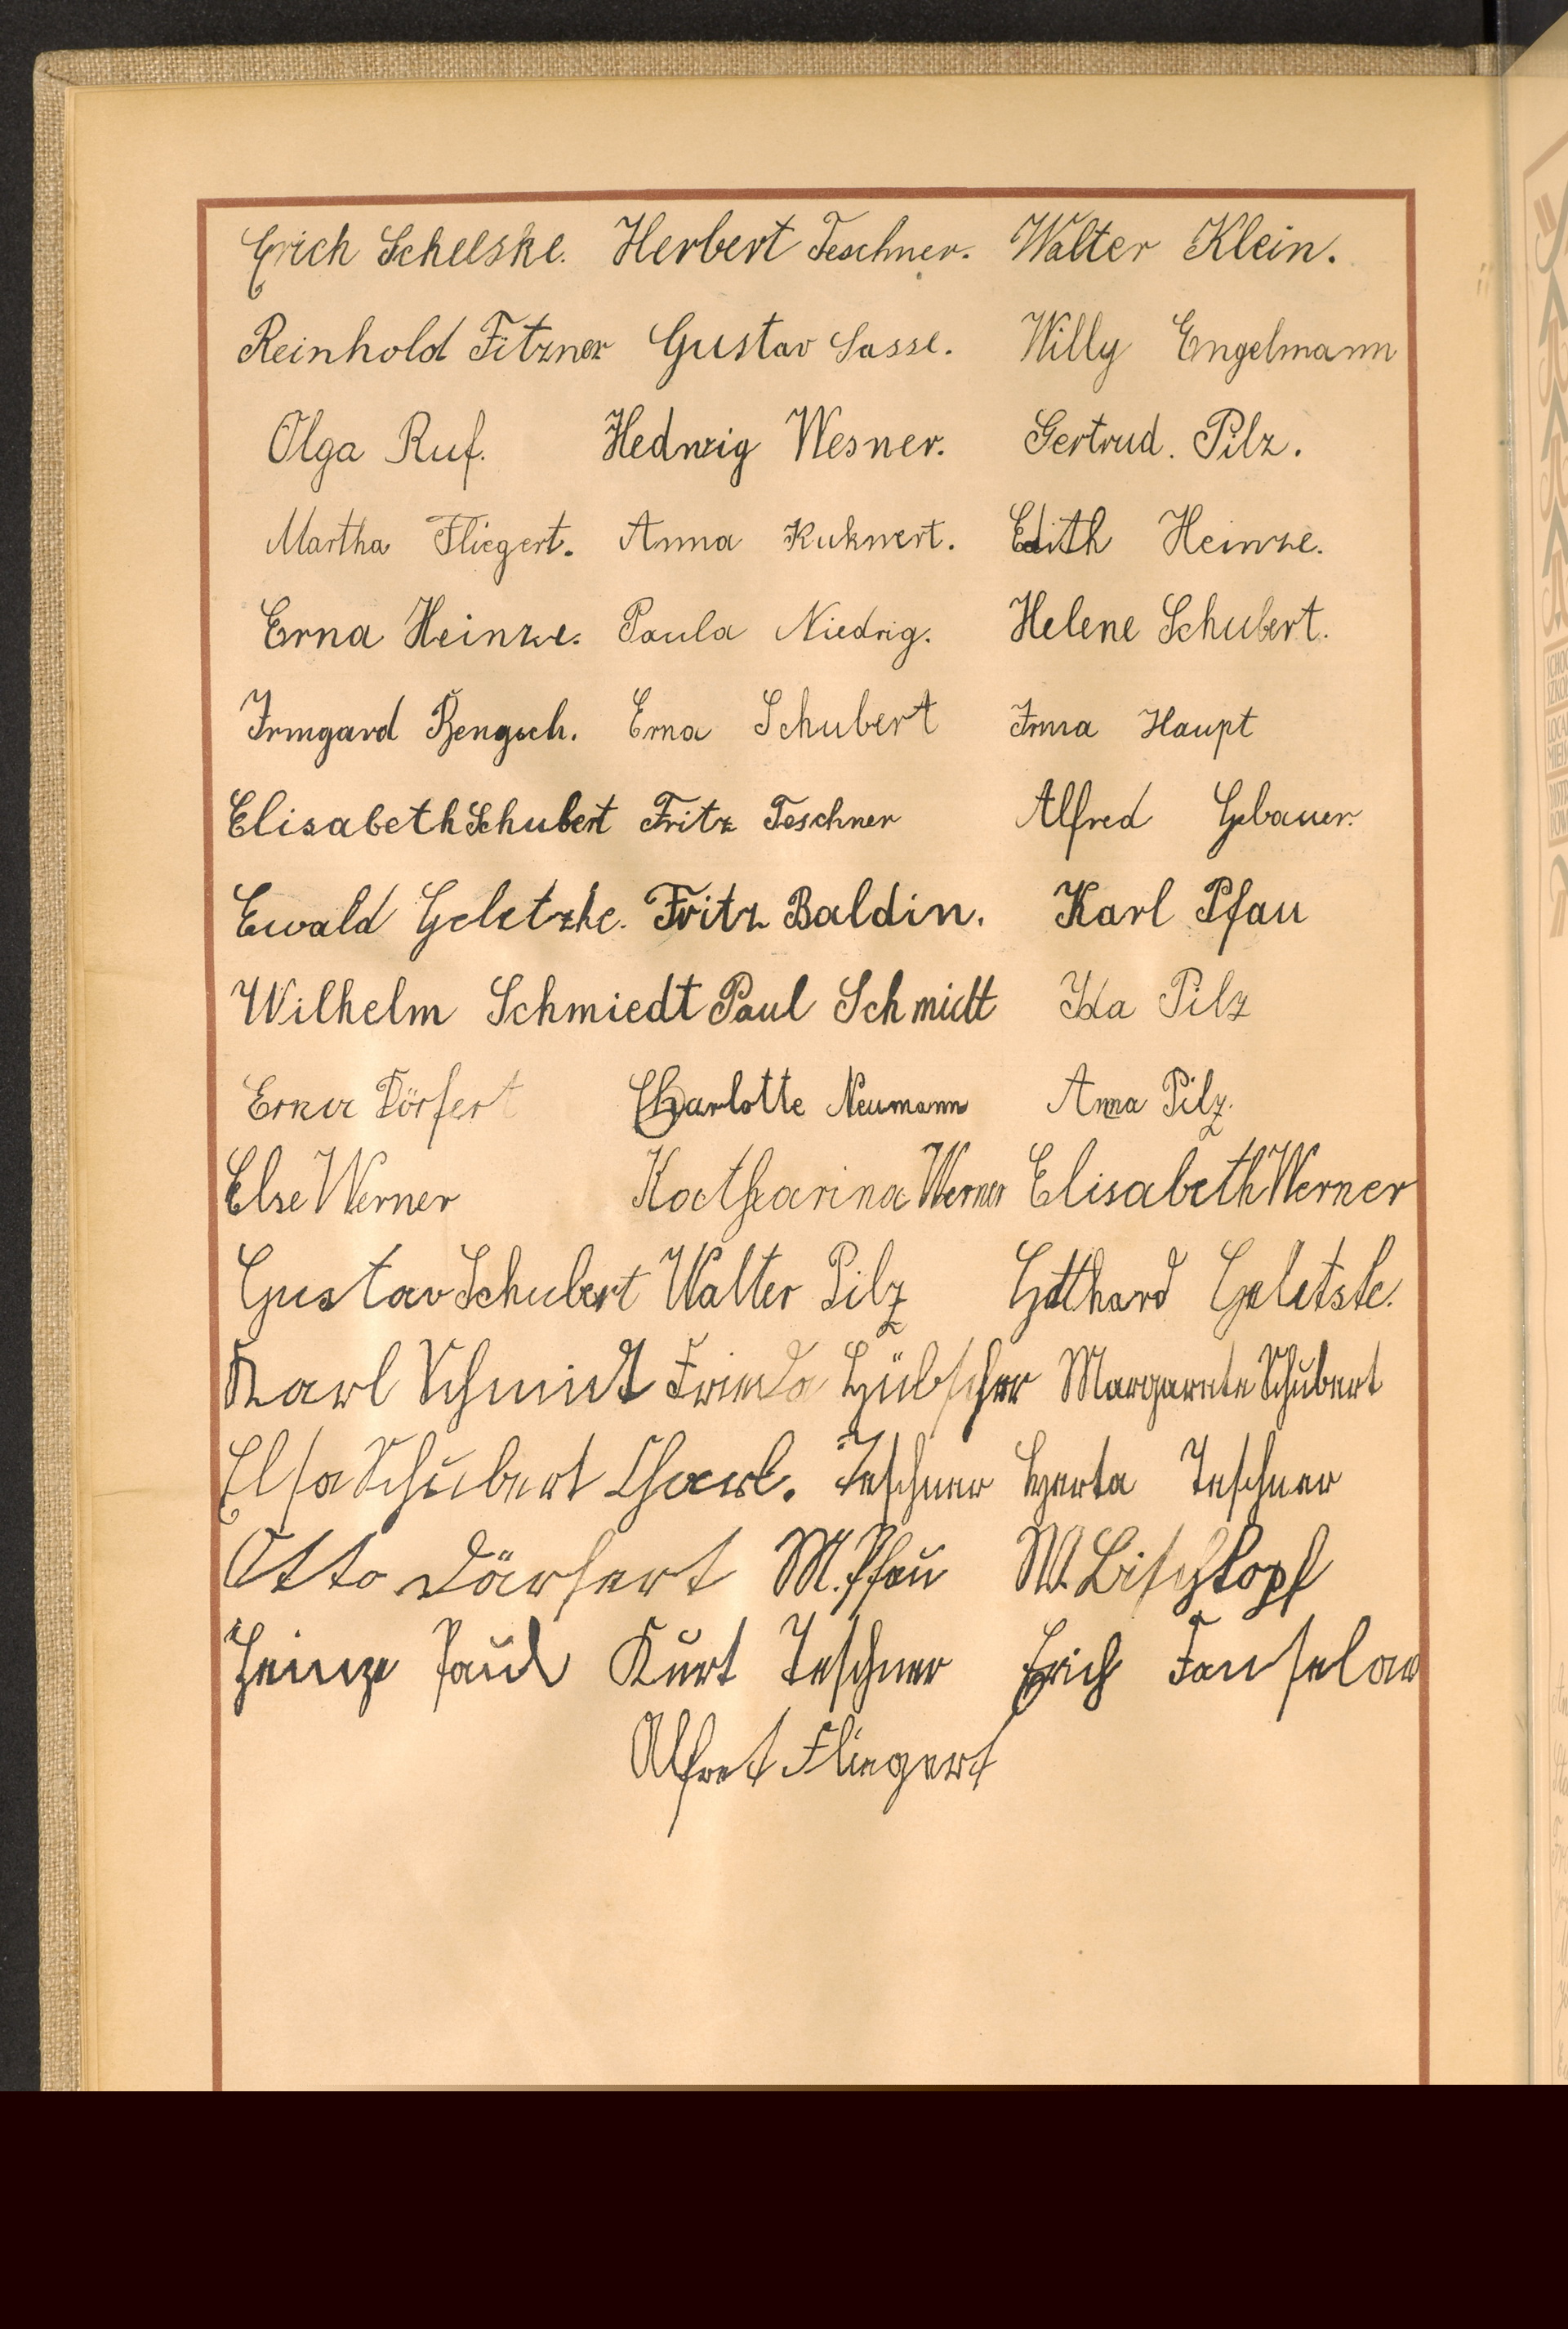 Erich Schelske. Herbert Teschner. Walter Klein.
Reinhold Fitzner Gustav Sasse. Willy Engelmann
Olga Ruf. Hedwig Wesner. Gertrud. Pilz.
Martha Fliegert. Anna Kuhnert. Edith Heinze.
Erna Heinze. Paula Niedrig. Helene Schubert.
Irmgard Bengsch. Erna Schubert Irma Haupt
Elisabeth Schubert Fritz Teschner Alfred Gebauer.
Ewald Geletzke. Fritz Baldin. Karl Pfau
Wilhelm Schmiedt Paul Schmidt Ida Pilz
Erna Dörfert Charlotte Neumann Anna Pilz.
Else Werner Katharina Werner Elisabeth Werner
Gustav Schubert Walter Pilz Gotthard
Karl Schmidt Frieda Hübscher Margarete Schubert
Elsa Schubert Charl. Teschner Herta Teschner
Otto Dörfert M. Pfau W. Bischkopf
Heinze Paul Kurt Teschner Erich Fanselow
Alfret Fliegert